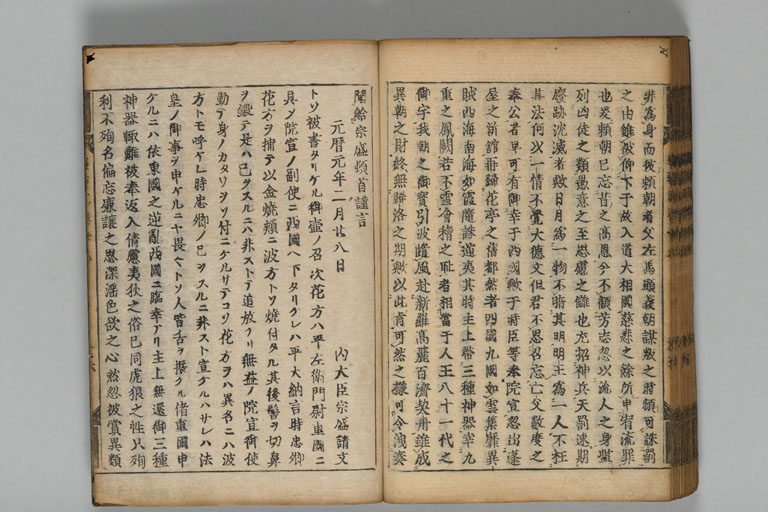 非為身而彼頼朝者父左馬頭義朝謀叛之時頻可誅罰
之由雖被仰下于故入道大相國慈悲之餘所申宥流罪
也爰頼朝已忘昔之高恩今不顧芳志忽以流人之身濫
列凶徒之類愚意之至思慮之讎也尤招神兵天罰速期
廢跡沈滅者歟日月為一物不暗其明明主為一人不枉
其法何以一情不覺大德文但君不思召忘亡父數度之
奉公者早可有御幸于西國歟于時臣等奉院宣忽出蓬
屋之新舘再歸花亭之舊都然者四國九國如雲集靡異
賊西海南海如霞隨誅逆夷其時主上帶三種神器幸九
重之鳳闕若不雪會稽之耻者相當于人王八十一代之
御宇我朝之御寶引波隨風赴新羅高麗百濟契丹雖成
異朝之財終無歸洛之期歟以此肯可然之樣可令洩奏
聞給宗盛頓首謹言
元曆元年二月廿八日 内大臣宗盛請文
トソ被書タリケル御壺ノ召次花方ハ平左衛門尉重國ニ
具ノ院宣ノ副使ニ西國ヘ下タリクレハ平大納言時忠卿
花方ヲ捕テ以金燒頬ニ波方トソ燒付タル其後髻ヲ切鼻
ヲ鐵テ是ハ己ヲスルニハ非ストテ追放ケリ無益ノ院宣御使
勤テ身ノカタワヲソ付ニケルサテコソ花方ヲハ異名ニハ波
方トモ呼ケレ時忠卿ノ己ヲスルニ非スト宣ケルハサレハ法
皇ノ御事ヲ申ケルニヤ畏ヘトソ人皆舌ヲ振クル借重國申
ケルニハ依東國之逆亂西國ニ臨幸アリ主上無還御三種
神器輙難被奉返入倩慮夷狄之俗已同虎狼之性只殉
利不殉名偏忘廉讓之思深滛色欲之心然忽被賞異類